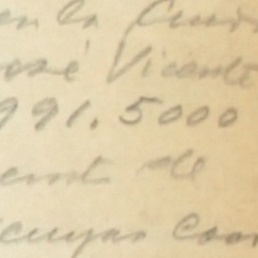 en la Ciud
José Vicente
991.5000
de
cuyas coor